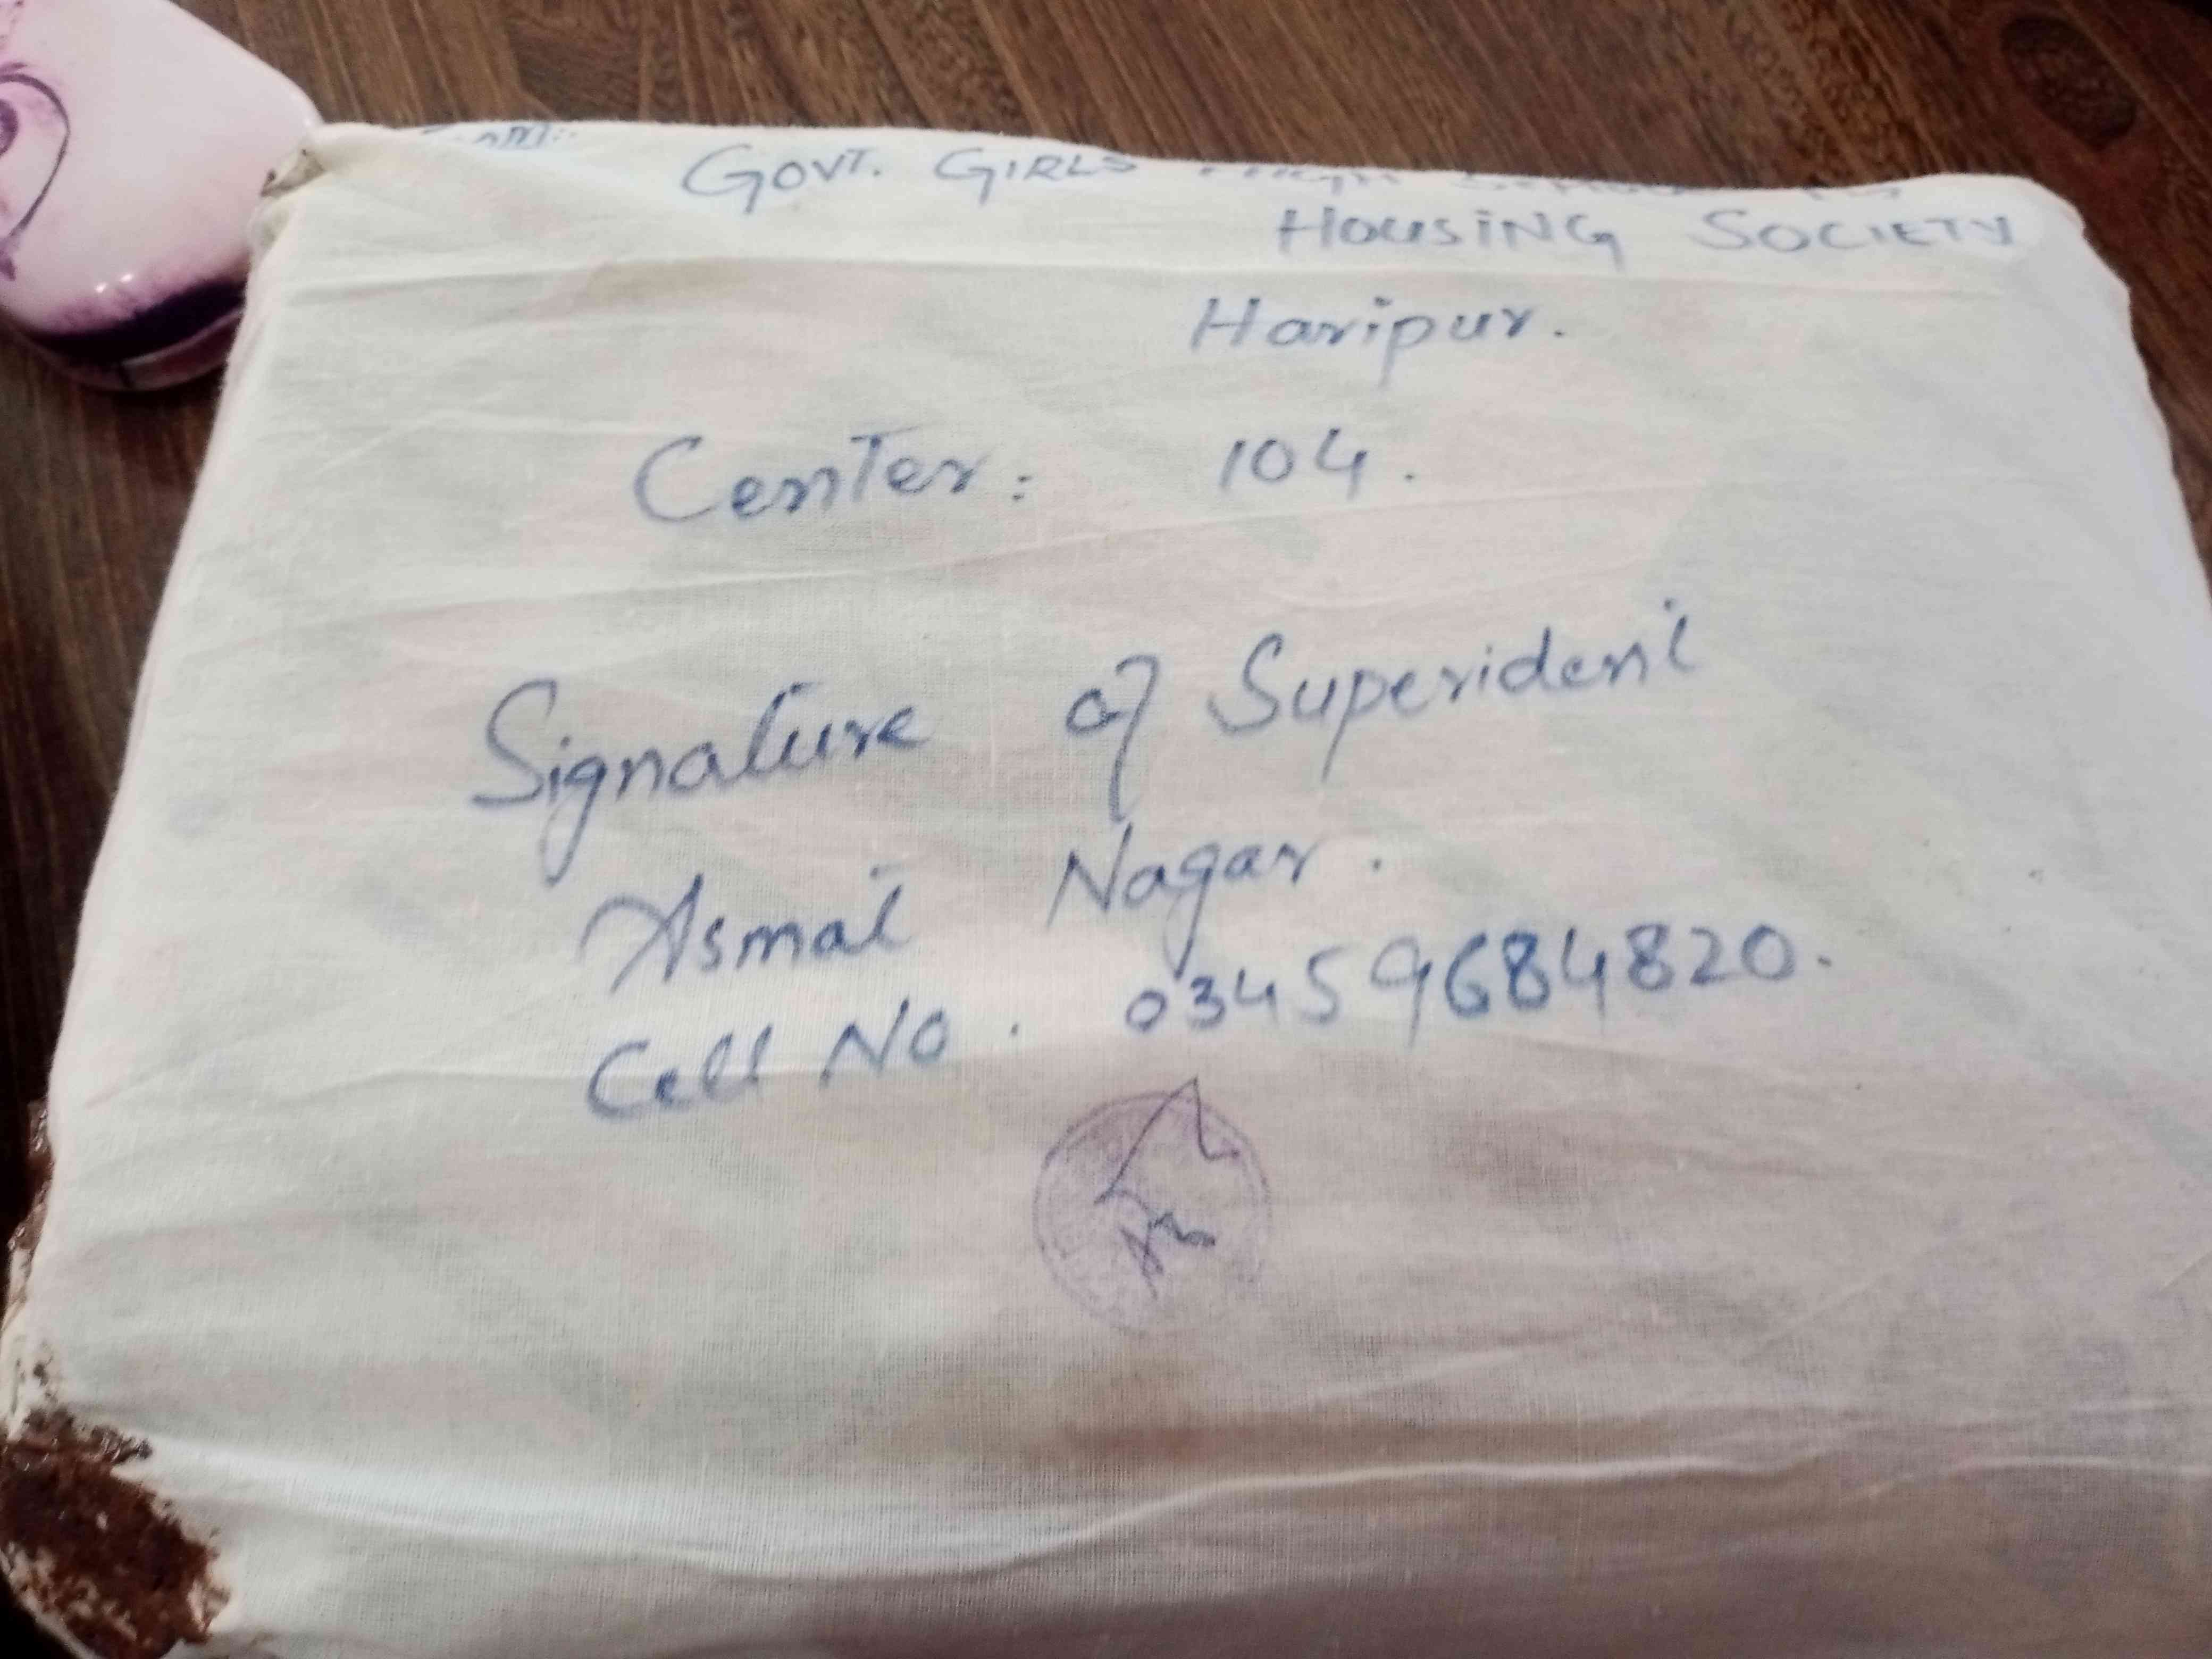 GOVT. GIRLS HIGH
HOUSING SOCIETY
Haripur.
Center: 104.
Signature of Superident
Asmat Nagar.
Cell No. 03459684820.